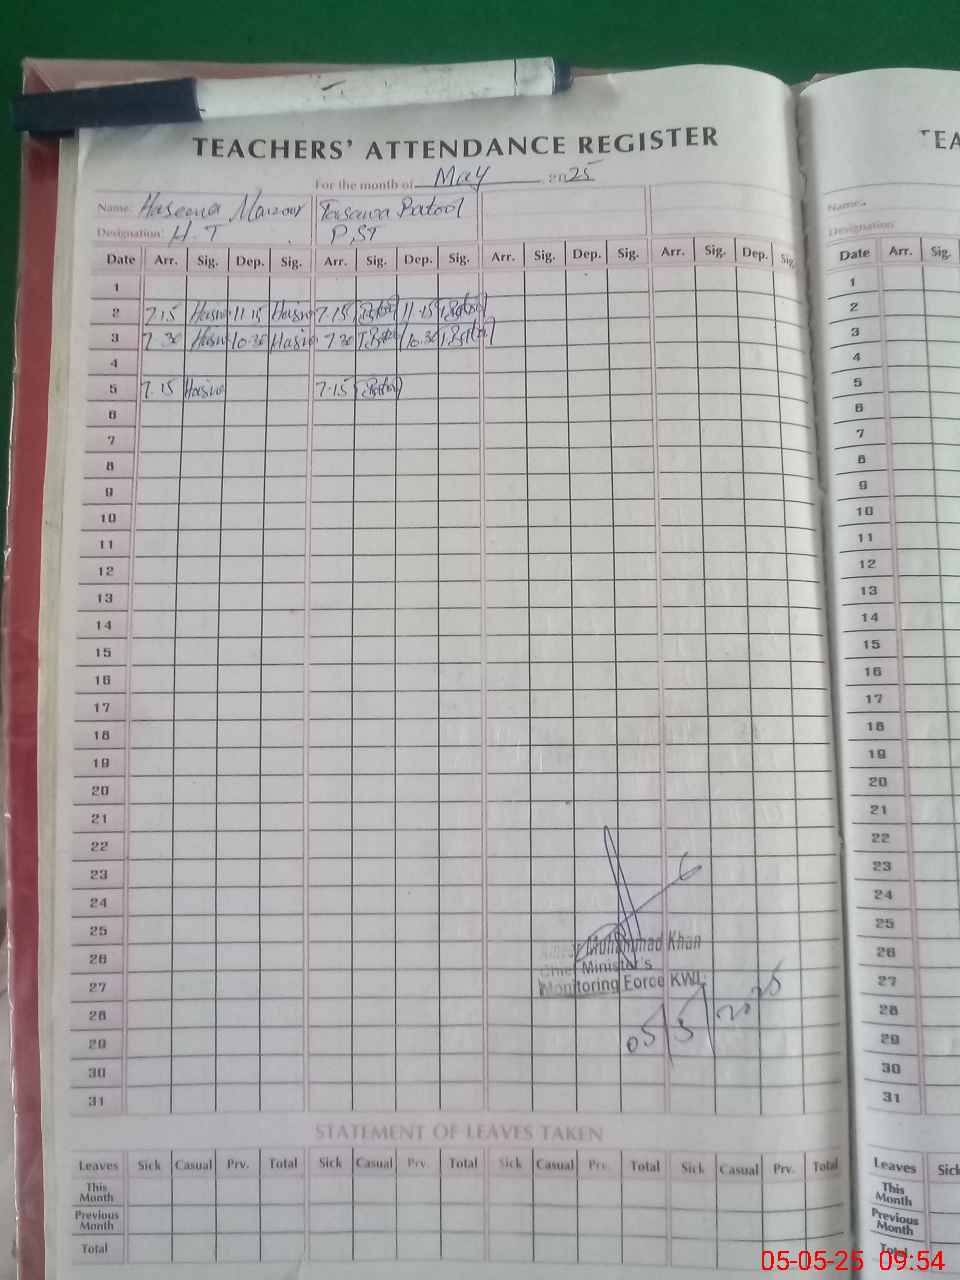 TEACHERS' ATTENDANCE REGISTER
For the month of May 2025
Name: Haseena Manzoor Tasawa Batool
Designation: H.T P.ST
Date Arr. Sig. Dep. Sig. Arr. Sig. Dep. Sig. Arr. Sig. Dep. Sig. Arr. Sig. Dep. Sig.
1
2 7.15 Hasina 11.15 Hasina 7.15 T.Batool 11.15 T.Batool
3 7.30 Hasina 10.30 Hasina 7.30 T.Batool 10.30 T.Batool
4
5 7.15 Hasina 7.15 T.Batool
6
7
8
9
10
11
12
13
14
15
16
17
18
19
20
21
22
23
24
25
26
27
28
29
30
31
Muhammad Khan
Chief Minister's
Monitoring Force KWL
05/5/2025
STATEMENT OF LEAVES TAKEN
Leaves Sick Casual Prv. Total Sick Casual Prv. Total Sick Casual Prv. Total Sick Casual Prv. Total
This Month
Previous Month
Total
TEA
Name.
Designation
Date Arr. Sig.
1
2
3
4
5
6
7
8
9
10
11
12
13
14
15
16
17
18
19
20
21
22
23
24
25
26
27
28
29
30
31
Leaves Sick
This Month
Previous Month
Total
05-05-25 09:54